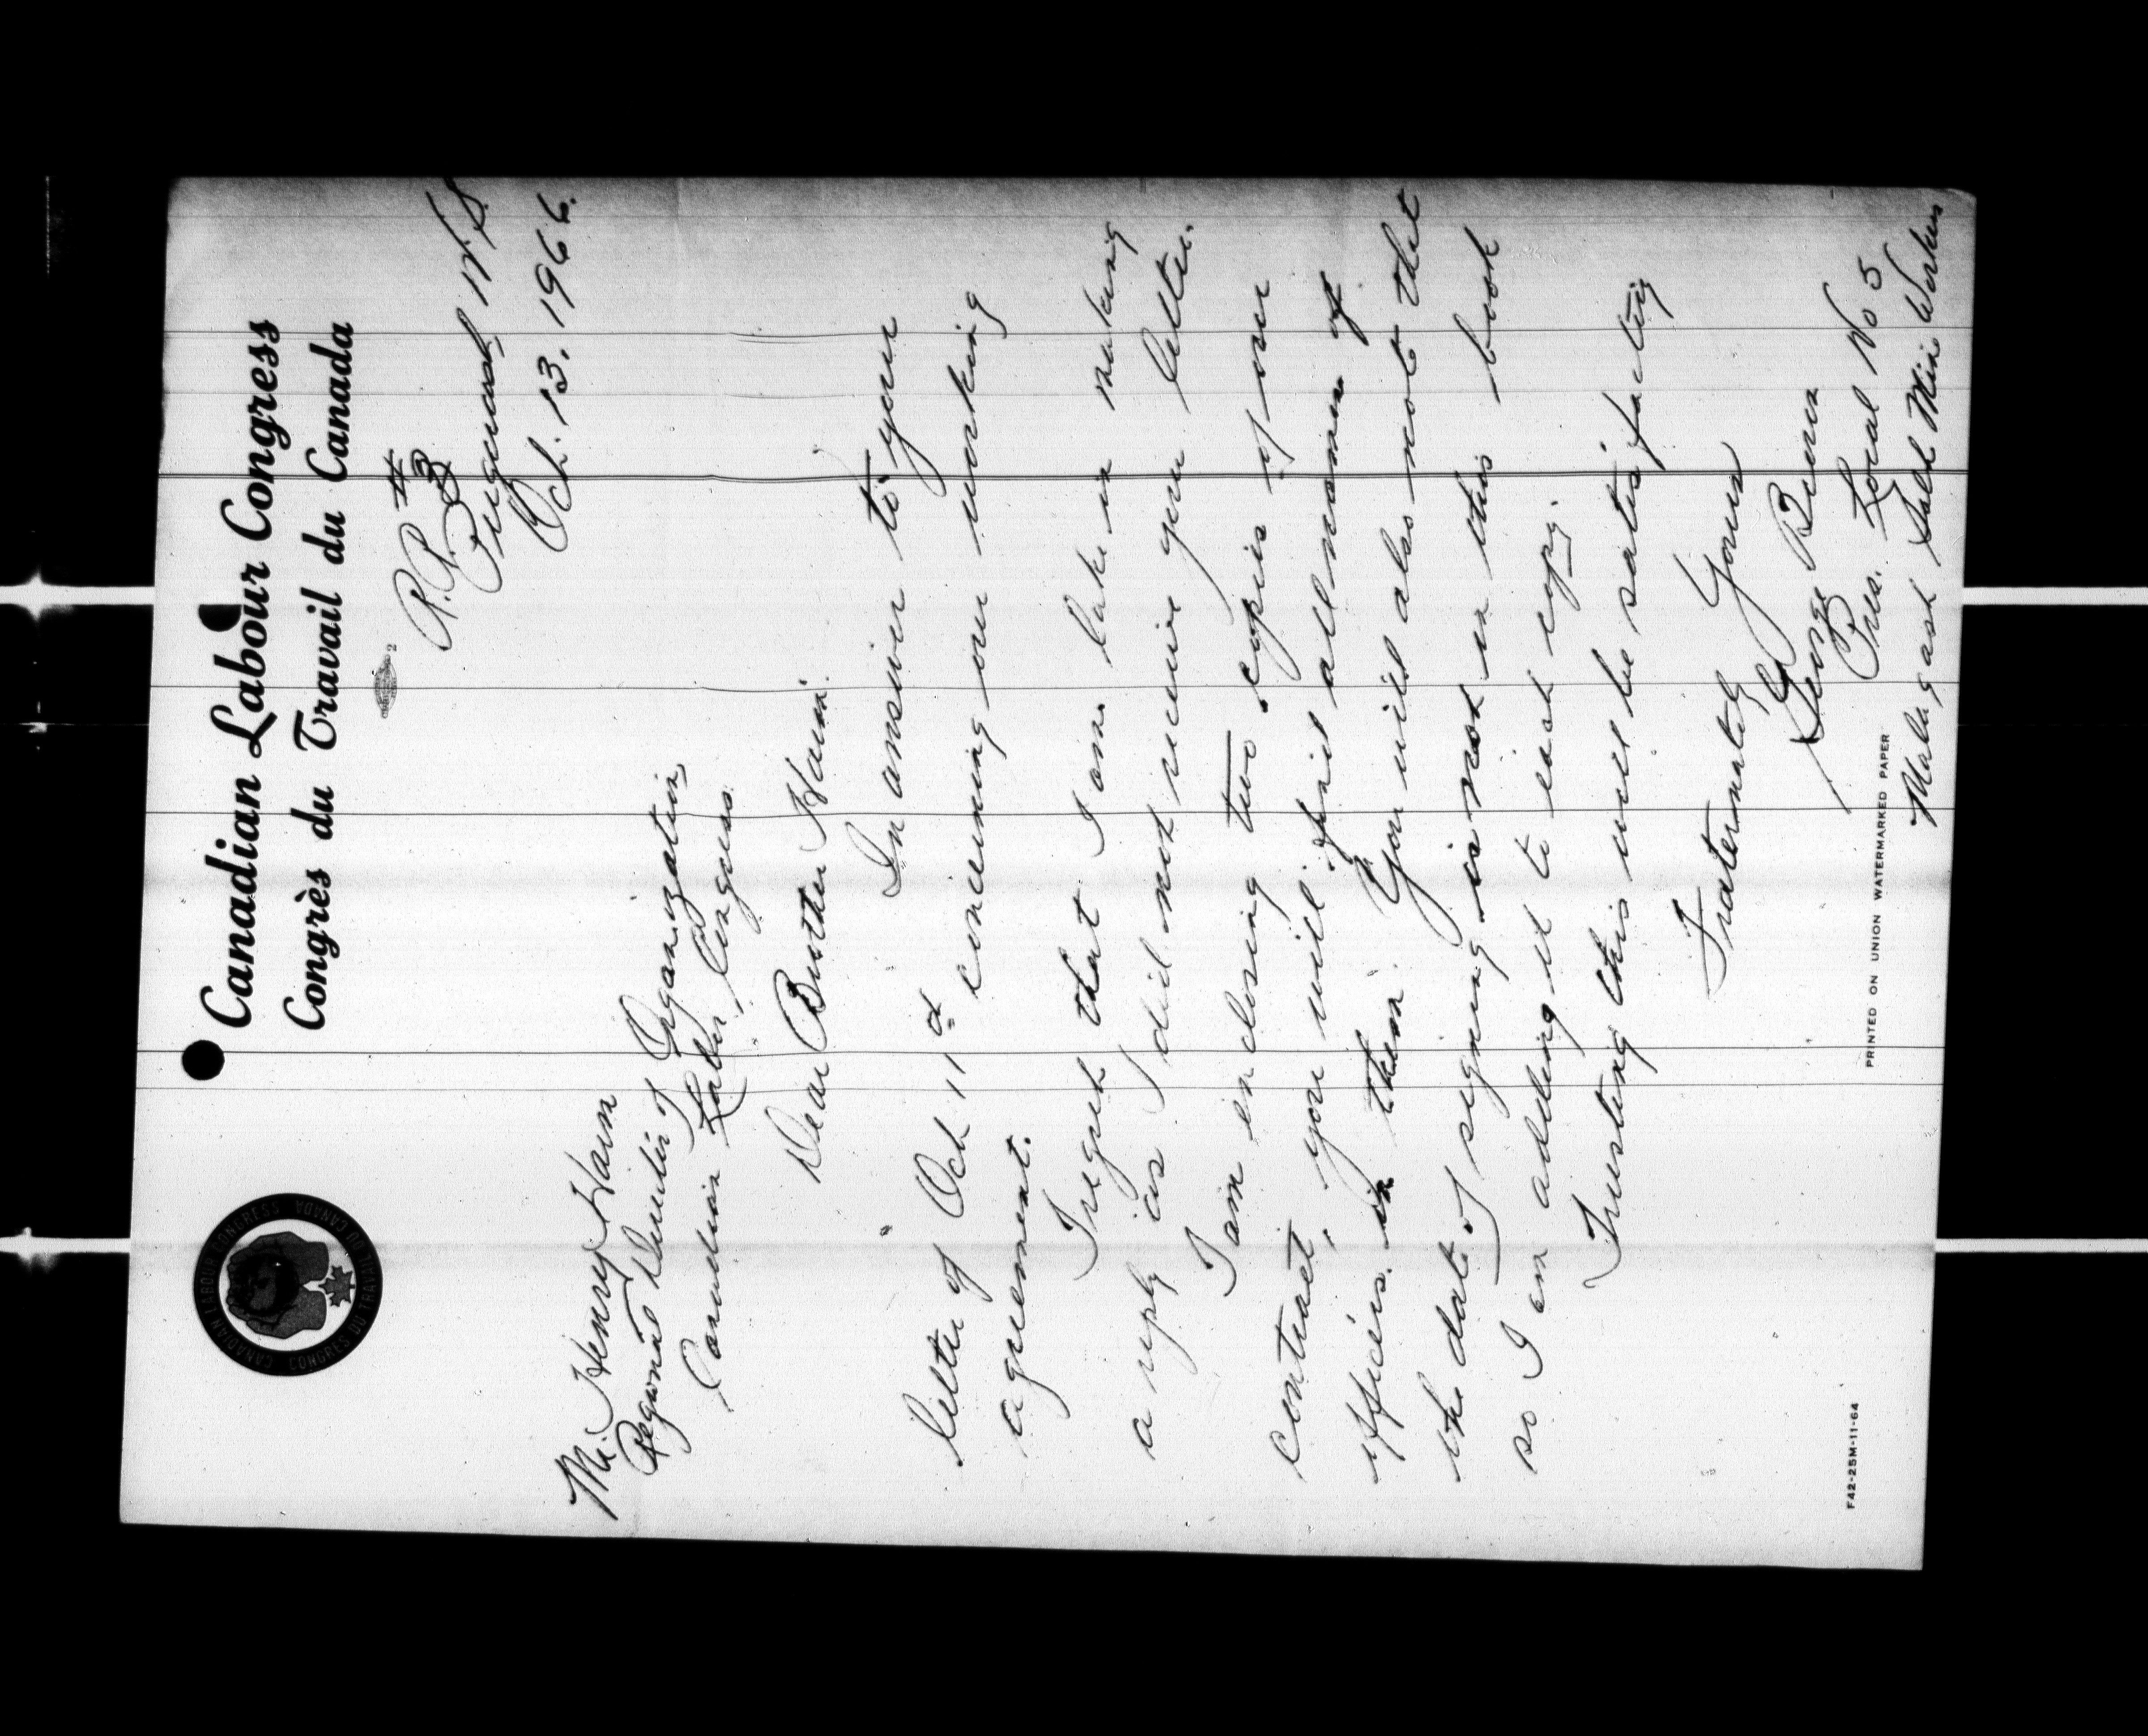 Canadian Labour Congress
Congrès du Travail du Canada
CANADIAN LABOUR CONGRESS CANADA
CONGRES DU TRAVAIL DU
2
R.R. #3
Pugwash N.S.
Oct. 13. 1966.
Mr. Henry Harm
Regional Director of Organization,
Canadian Labor Congress.
Dear Brother Harm.
In answer to your
letter of Oct 11th concerning our working
agreement.
I regret that I am late in making
a reply as I did not receive your letter.
I am enclosing two copies of our
contract, you will find all names of
officers in them. You will also note that
the date of signing is not in this book
so I am adding it to each copy.
Trusting this will be satisfactory
Fraternatly Yours
George
Pres. Local No 5
Malagash Salt Mine Workers
PRINTED ON UNION WATERMARKED PAPER
F42-25M-11-64